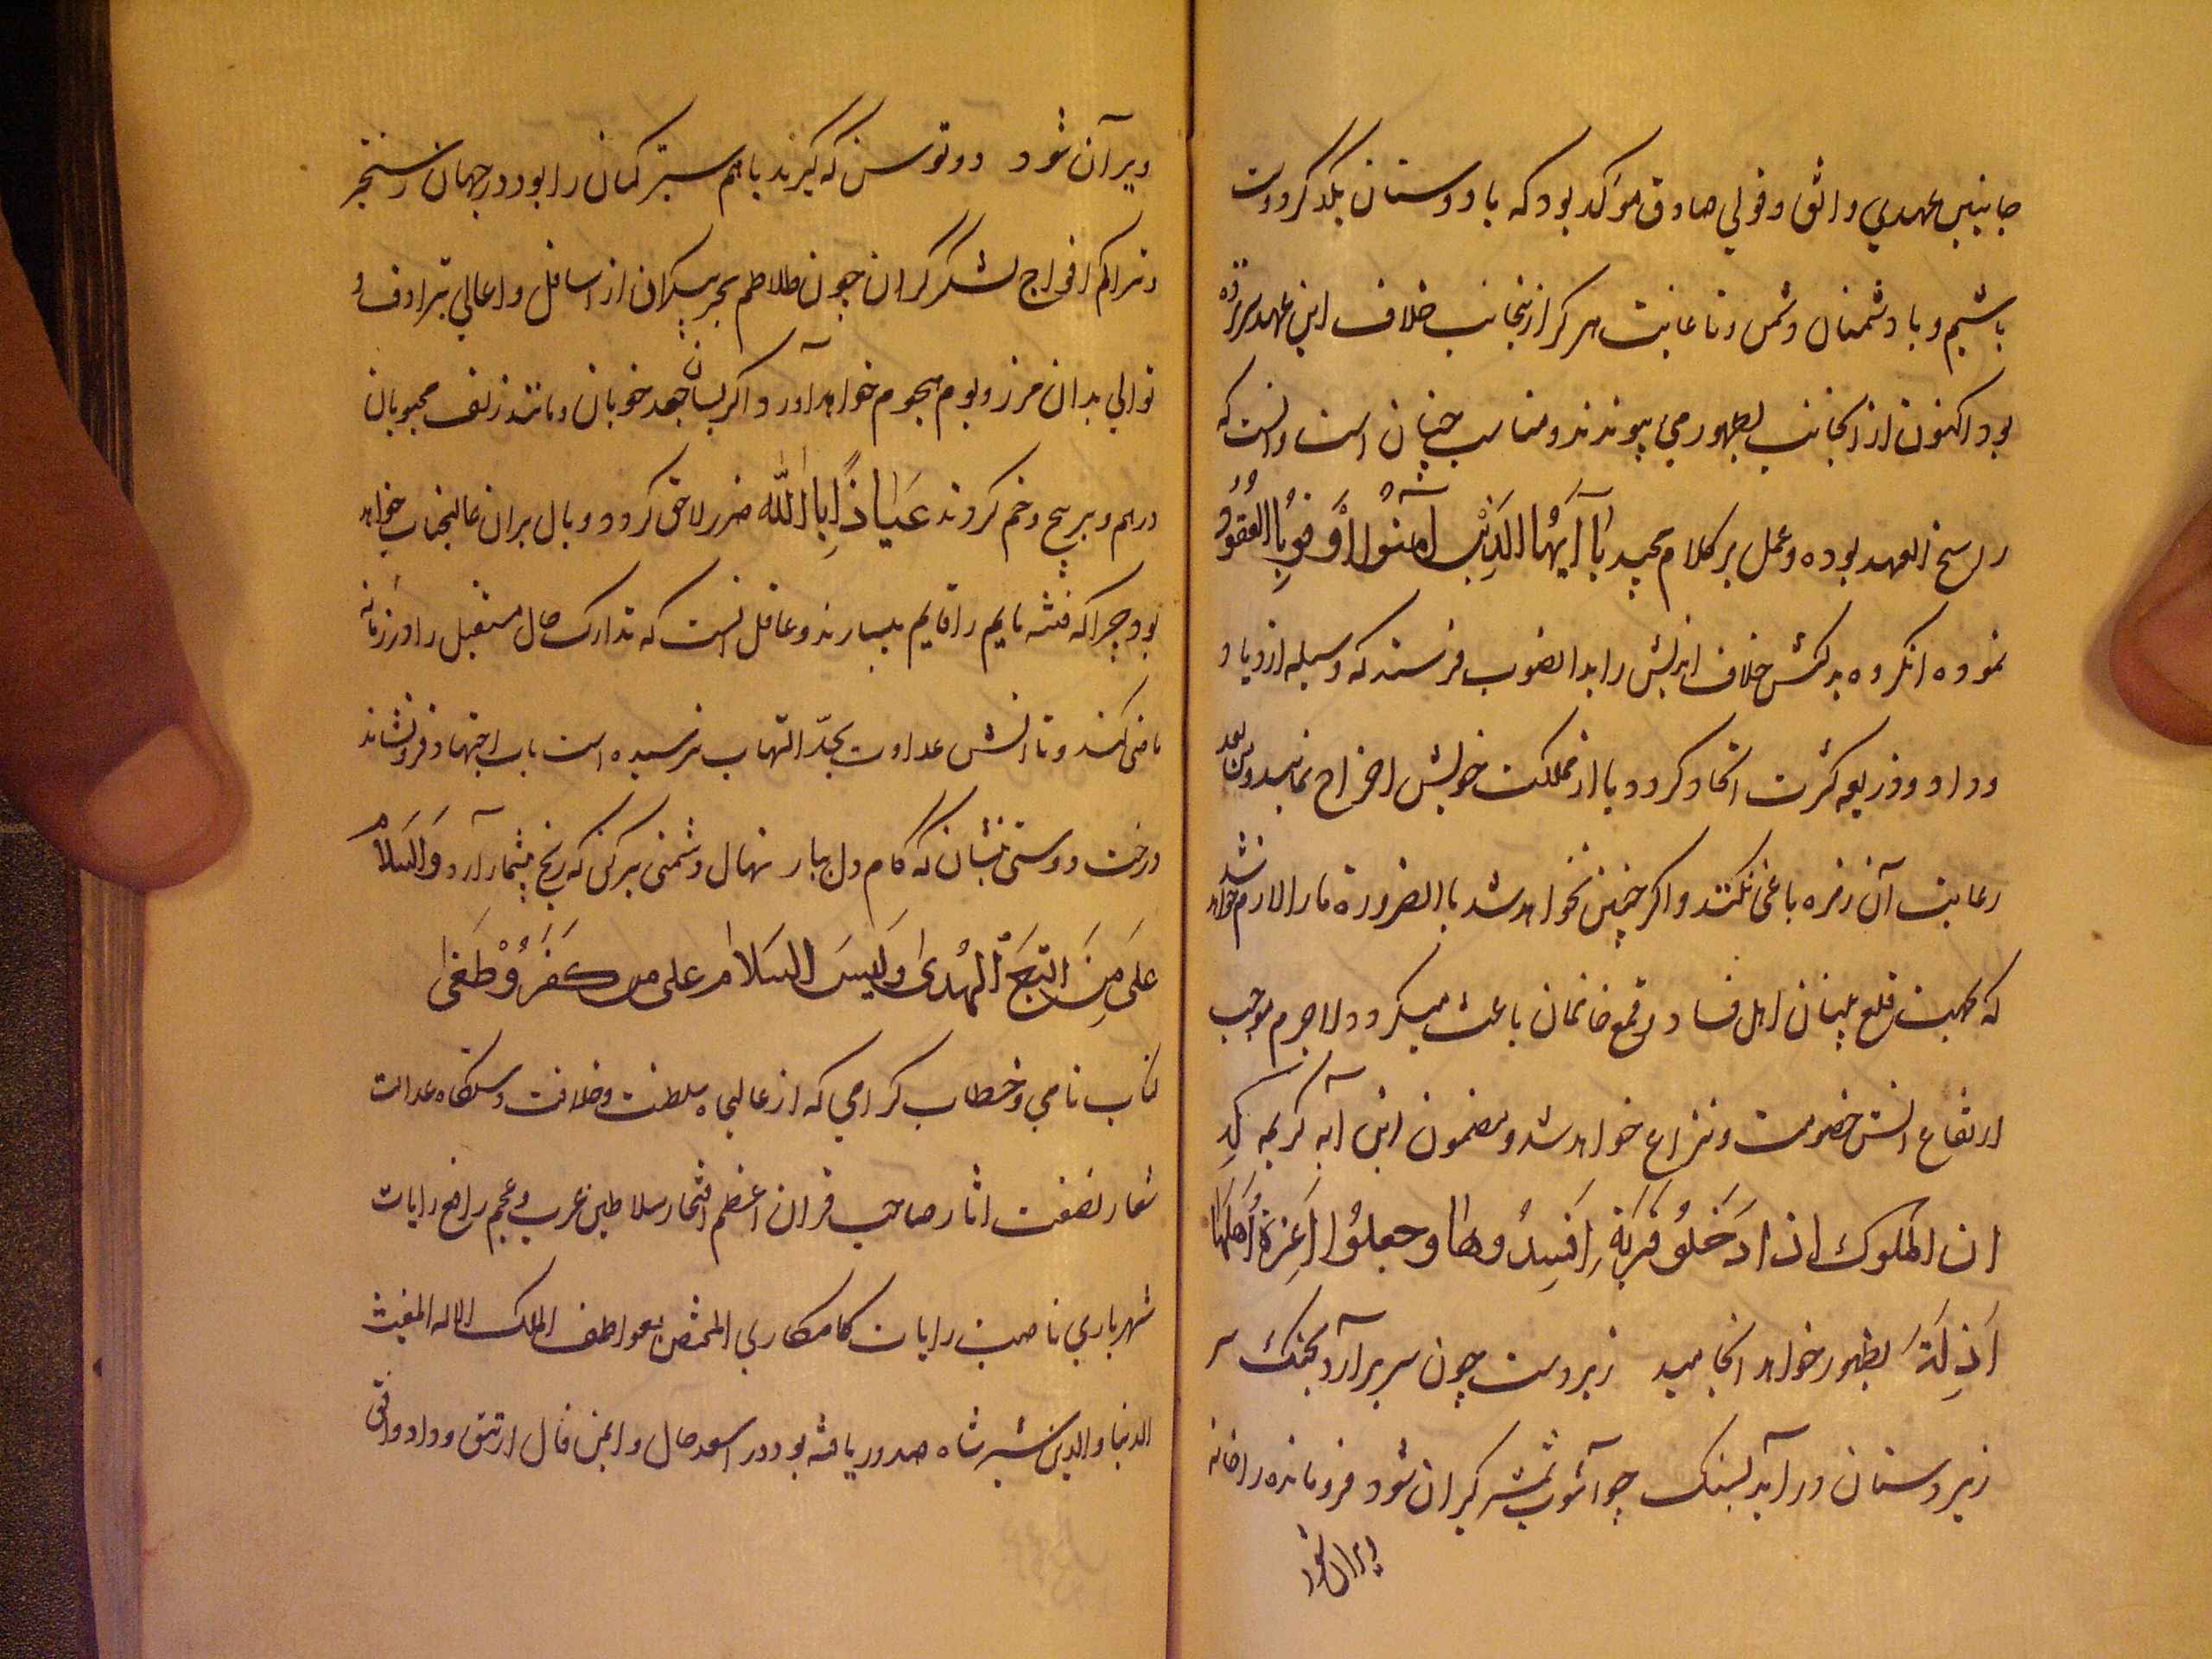 جانبین عهدی واثق و قولی صادق مؤکد بود که با دوستان یکدگر دوست
باشیم و با دشمنان دشمن و تا غایت هرگز ازینجانب خلاف این عهد سر نزده
بود اکنون از انجانب بظهور می پیوندند و مناسب چنان است و انست که
راسخ العهد بوده و عمل بر کلام مجید یَا اَیُّهَا الَّذِیْنَ آمَنُوْا اَوْفُوْ بِاالْعُقُوْدْ
نموده انکروه بدکنش خلاف اندیش را بدانصوب فرستند که وسیله ازدیاد
وداد و ذریعه کثرت اتحاد کردد یا از مملکت خویش اخراج نمایند و من بعد
رعایت آن زمره باغی نکنند و اکر چنین نخواهد شد باالضرورة ما را لازم خواهد شد
که بجهت قلع بنیان اهل فساد و قمع خانمان باعث میکردد لاجرم موجب
ارتفاع اتش خصومت و نزاع خواهد شد و مضمون این آیه کریمه که
ان الملوک اذا دَخَلُوْ قَرْیَةً اَفْسِدُوها وجعلوُا اَعِزَةُ اَهْلَهَا
اَذِلَةَ بظهور خواهد انجامید زبردست چون سر برآرد بجنک سر
زیردستان درآید بسنک چو آشوب لشکر کران شود فرومانده را خانه
ویران شود
ویرآن شود دو توسن که کیرند باهم ستیز کمان را بود در جهان رستخیز
و تراکم افواج لشکر کران چون طلاطم بحر بیکران از اسافل و اعالی بترادف و
توالی بدان مرز و بوم هجوم خواهد آورد و اکر بسان جعد خوبان و مانند زلف محبوبان
درهم و برپیچ و خم کردند عَیَاذًا بِاالله ضرر لاحق کردد و وبال بران عالیجناب خواهد
بود چرا که فتنه نایم را قایم میسازند و عاقل انست که تدارک حال مستقبل را در زمانه
ماضی کند و تا اتش عداوت بحدّ التهاب نرسیده است باب اجتهاد فرونشاند
درخت دوستی بنشان که کام دل ببار نهال دشمنی برکن که رنج بیشمار آرد وَالسَلاَمْ
عَلَی مِنَ اتَّبَعَ الْهُدیٰ وَلَیْسَ السَلاَمْ علی من کَفَرَ وْ طَغَیٰ
کتاب نامی و خطاب کرامی که از عالیجاه سلطنت و خلافت دستکاه عدالت
شعار نصفت اثار صاحب قران اعظم افتخار سلاطین عرب و عجم رافع رایات
شهریاری ناصب رایات کامکاری المختص بعواطف الملک الاله المغیث
الدنیا والدین شیر شاه صدور یافته بود در اسعد حال و ایمن فال ارتق وداد واثق